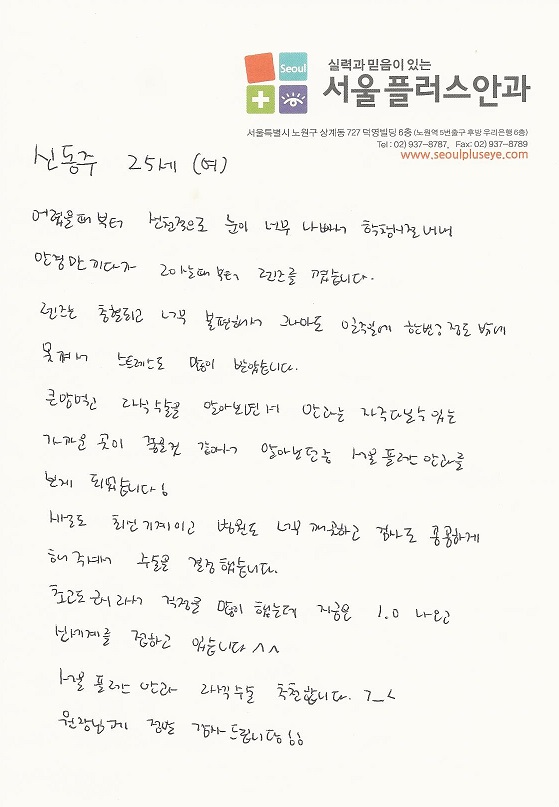 Seoul
실력과 믿음이 있는
서울플러스안과
서울특별시 노원구 상계동 727 덕영빌딩 6층 (노원역 5번출구 후방 우리은행 6층)
Tel : 02) 937-8787, Fax: 02) 937-8789
www.seoulpluseye.com
신동주 25세 (여)
어렸을때부터 선천적으로 눈이 너무 나빠서 학창시절 내내
안경만 끼다가 20살때부터 렌즈를 꼈습니다.
렌즈는 충혈되고 너무 불편해서 그나마도 일주일에 한번정도 밖에
못껴서 스트레스도 많이 받았습니다.
큰맘먹고 라식수술을 알아보던서 안과는 자주다닐수 있는
가까운 곳이 좋을것 같아서 알아보던중 서울 플러스 안과를
보게 되었습니다!
시설도 최신기계이고 병원도 너무 깨끗하고 검사도 꼼꼼하게
해 주셔서 수술을 결정했습니다.
초고도근시라서 걱정을 많이 했는데 지금은 1.0 나오고
신세계를 접하고 있습니다 ^^
서울 플러스 안과 라식수술 추천합니다. ㄱ_ㄴ
원장님께 정말 감사드립니당!!